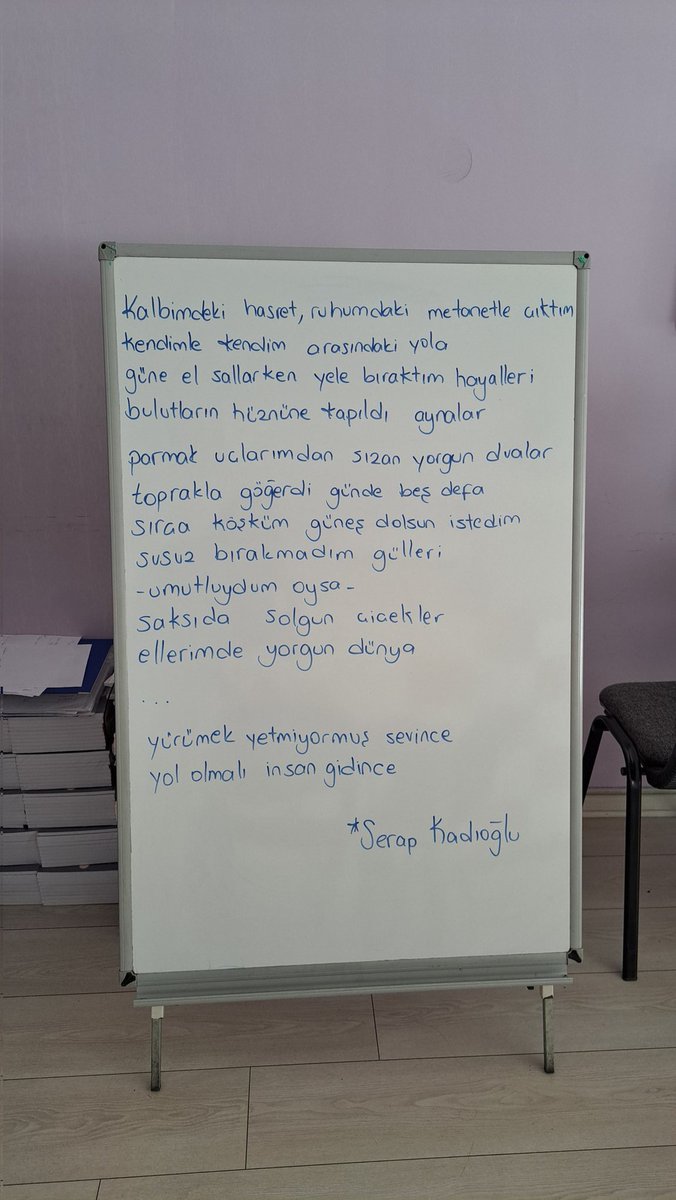 Kalbimdeki hasret, ruhumdaki metanetle çıktım
kendimle kendim arasındaki yola
güne el sallarken yele bıraktım hayalleri
bulutların hüznüne tapıldı aynalar
parmak uçlarımdan sızan yorgun dualar
toprakla göğerdi günde beş defa
sırça köşküm güneş dolsun istedim
susuz bırakmadım gülleri
-umutluydum oysa-
saksıda solgun çiçekler
ellerimde yorgun dünya
...
yürümek yetmiyormuş sevince
yol olmalı insan gidince
*Serap Kadıoğlu